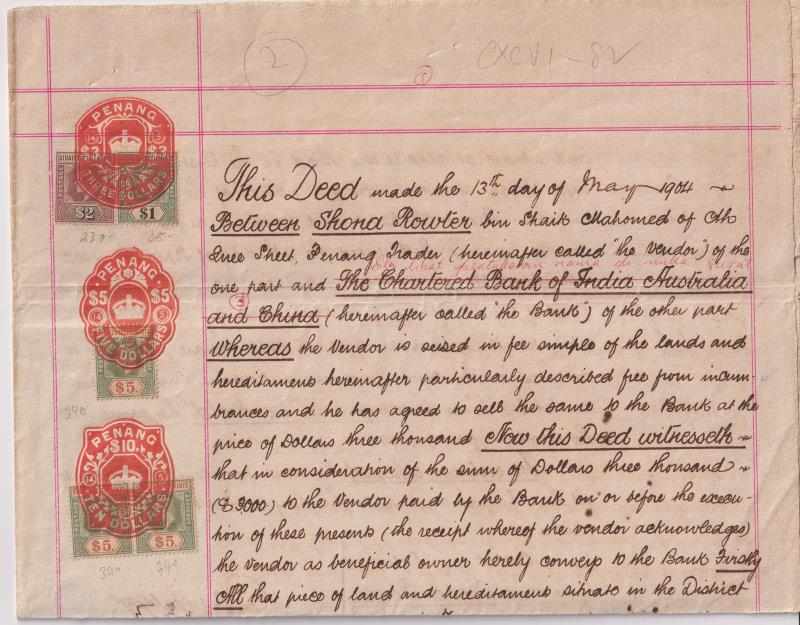 2
CXCVI-82
1
PENANG
$3 $3
THREE DOLLARS
STRAITS SETTLEMENTS
POSTAGE
$2 $1
230- 45-
PENANG
$5 $5
14 5
FIVE DOLLARS
$5.
340
PENANG
$10
14 5
TEN DOLLARS
$5. $5.
340 340
This Deed made the 13th day of May 1904 ~
Between Shona Rowter bin Shaik Mahomed of Ah
Quee Street, Penang Trader (hereinafter called "the Vendor") of the
bila lihat pertukaran nama de mulka surat
one part and The Chartered Bank of India Australia
3
and China (hereinafter called "the Bank") of the other part
Whereas the Vendor is seised in fee simple of the lands and
hereditaments hereinafter particularly described free from incum-
brances and he has agreed to sell the same to the Bank at the
price of Dollars three thousand Now this Deed witnesseth ~
that in consideration of the sum of Dollars three thousand ~
($3000) to the Vendor paid by the Bank on or before the execu-
tion of these presents (the receipt whereof the vendor acknowledges)
the Vendor as beneficial owner hereby conveys to the Bank Firstly
All that piece of land and hereditaments situate in the District